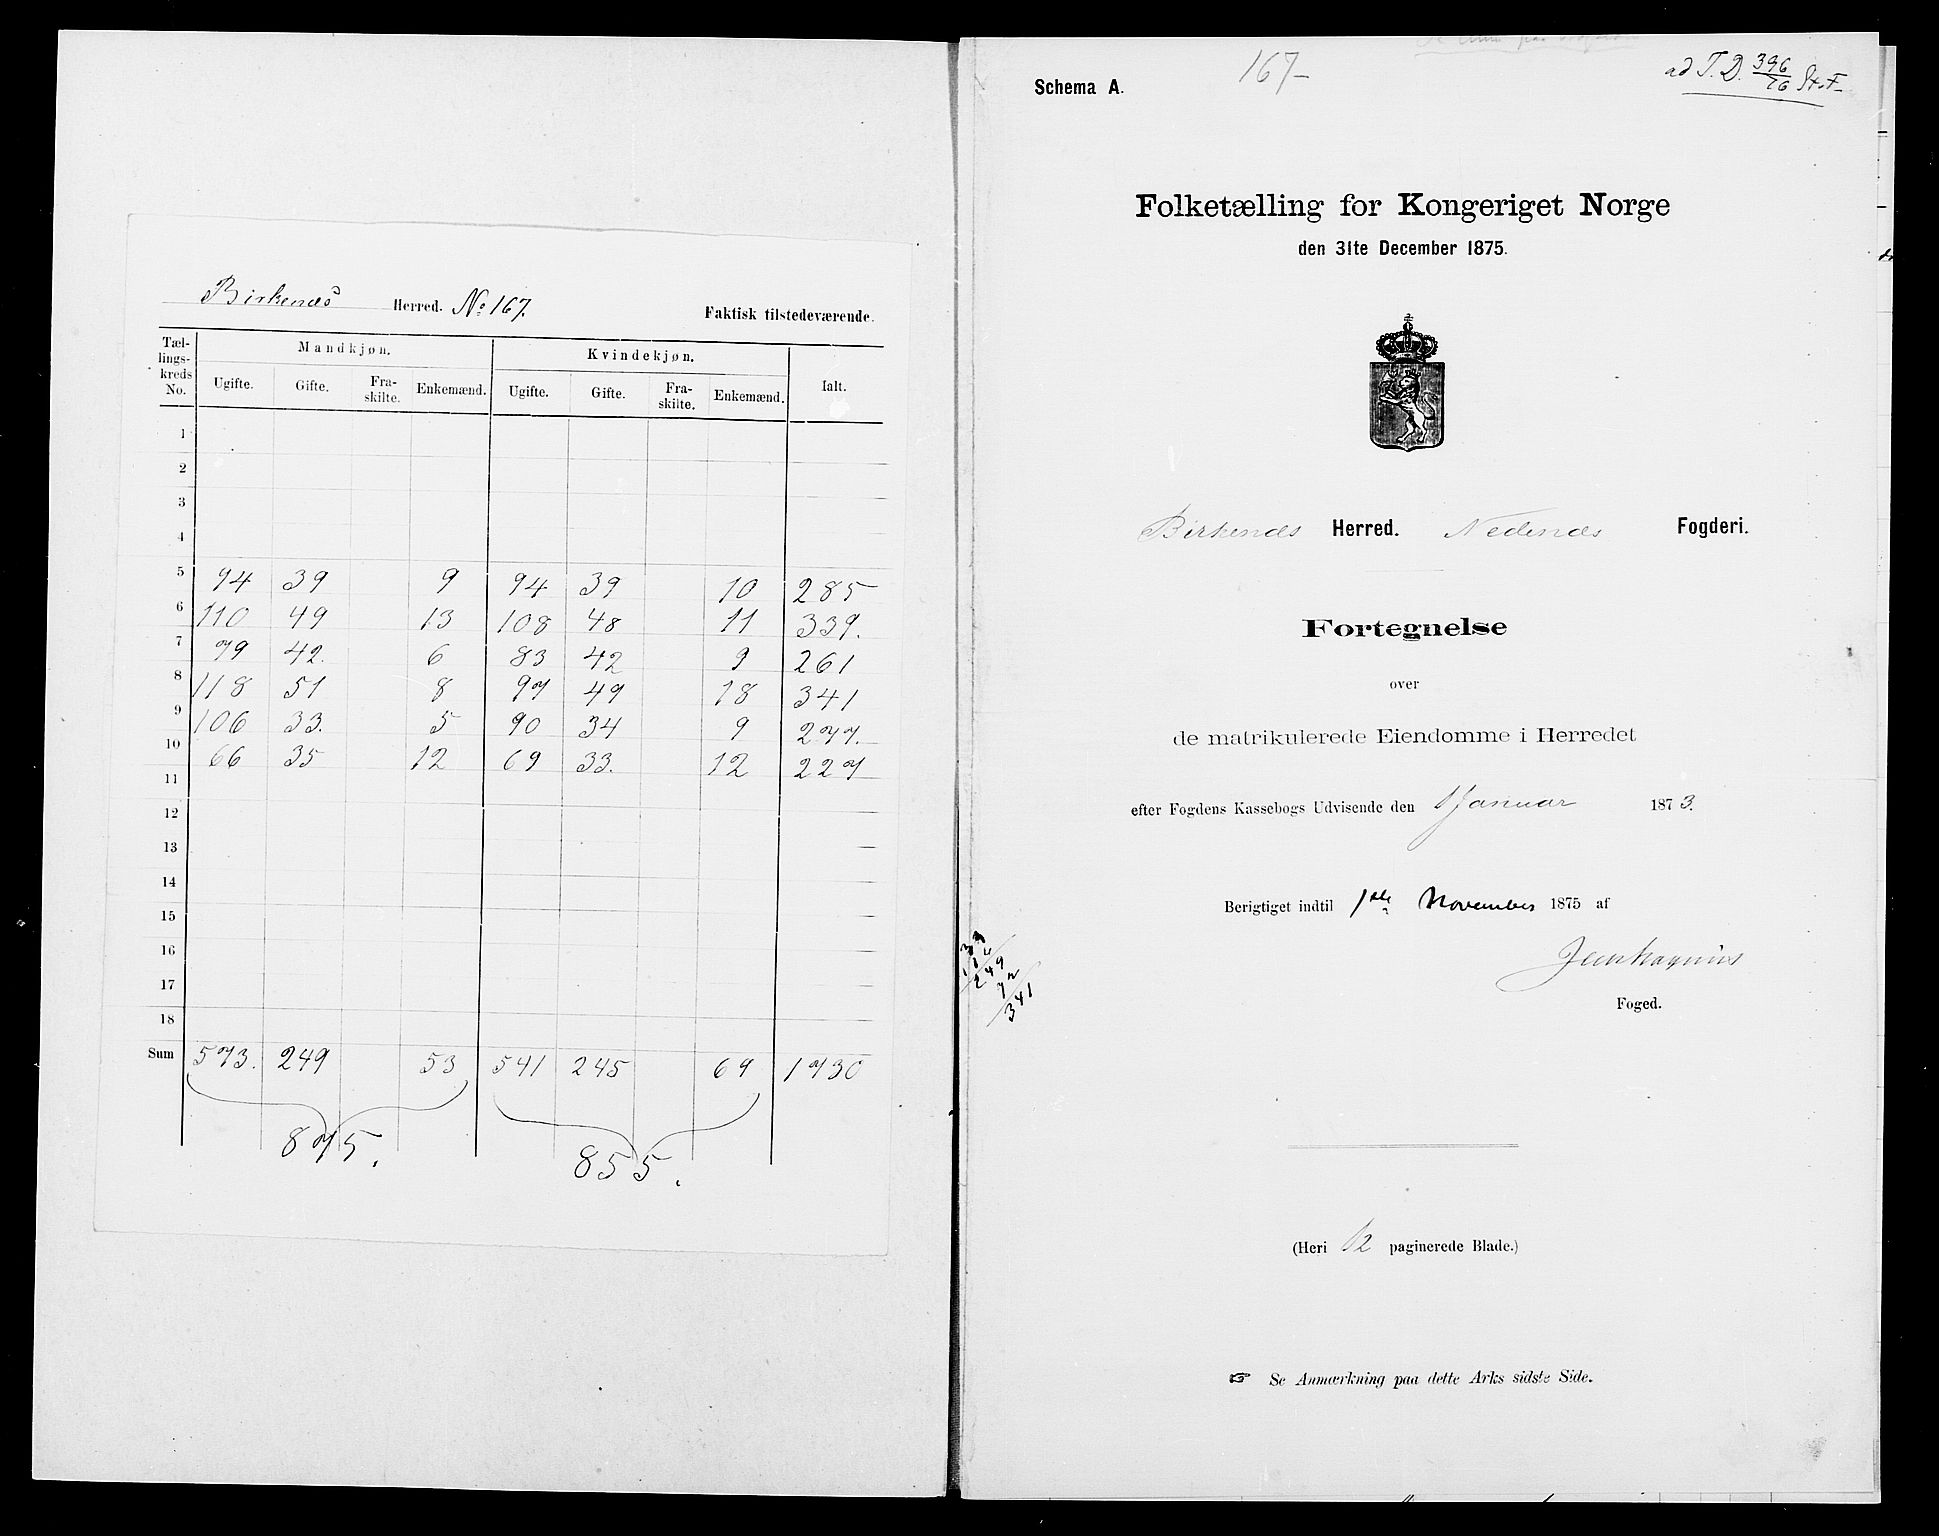 Birkenæs Herred. No. 167. Faktisk tilstedeværende.
Tællingskreds No. Mandkjøn. Kvindekjøn. Ialt.
Ugifte. Gifte. Fraskilte. Enkemænd. Ugifte. Gifte. Fraskilte. Enkemænd.
1
2
3
4
5 94 39 9 94 39 10 285
6 110 49 13 108 48 11 339.
7 79 42. 6 83 42 9 261
8 118 51 8 97 49 18 341
9 106 33. 5 90 34 9 277.
10 66 35 12 69 33. 12 227
11
12
13
14
15
16
17
18
Sum 573. 249 53 541 245 69 1730
875. 855.
Schema A. 167- ad T. D. 396/76 St. F.
Folketælling for Kongeriget Norge
den 31te December 1875.
Birkenæs Herred. Nedenæs Fogderi.
Fortegnelse
over
de matrikulerede Eiendomme i Herredet
efter Fogdens Kassebogs Udvisende den 1 Januar 1873.
Berigtiget indtil 1ste November 1875 af
Foged.
249
341
(Heri 12 paginerede Blade.)
☞ Se Anmærkning paa dette Arks sidste Side.